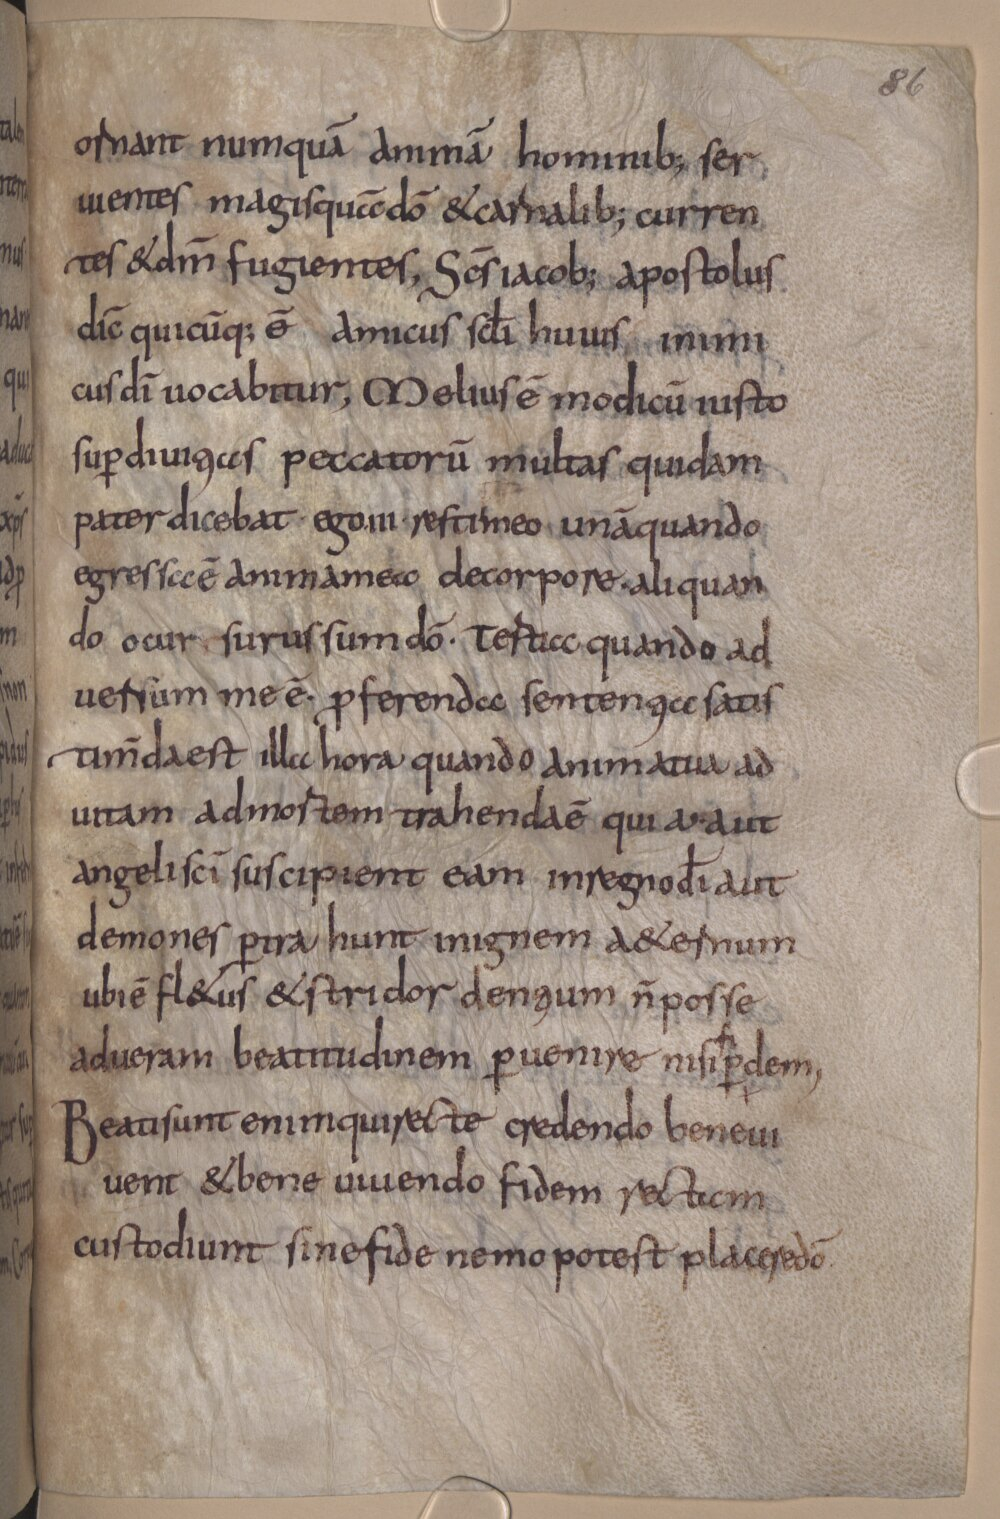 86
ornant numquā animā hominib; ser
uientes magisquā dō & carnalib; curren
tes & dm̄ fugientes, Scs̄ iacob; apostolus
dic̄ quicūq; ē amicus scl̄i huius inimi
cus dī uocabitur, Melius ē modicū iusto
sup diuitias peccatorū multas quidam
pater dicebat ego iii res timeo unā quando
egressa ē anima mea de corpore. aliquan
do ocur surus sum dō. Tertia quando ad
uersum me ē. pferenda sententia satis
tim̄da est illa hora quando anima tua ad
uitam ad mortem trahenda ē quia aut
angeli scī suscipient eam in regno dī aut
demones ptra hunt in ignem a&ernum
ubi ē fl&us & stridor dentium n̄ posse
ad ueram beatitudinem puenire nisi p fidem,
Beati sunt enim qui recte credendo bene ui
uent & bene uiuendo fidem rectam
custodiunt sine fide nemo potest placere dō